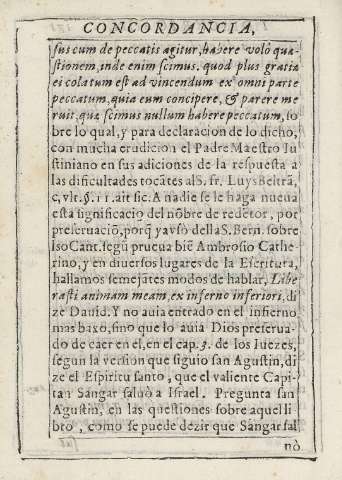 CONCORDANCIA,
sus cum de peccatis agitur, habere volò quæ-
stionem, inde enim scimus. quod plus gratiæ
ei colatum est ad vincendum ex omni parte
peccatum, quia eum concipere, & parere me
ruit, quæ scimus nullum habere peccatum, so
bre lo qual, y para declaracion de lo dicho,
con mucha erudicion el Padre Maestro Iu
stiniano en sus adiciones de la respuesta a
las dificultades tocãtes al S. fr. Luys Beltrã,
c, vlt. §. 11. ait sic. A nadie se le haga nueua
esta significaciõ del nõbre de redẽtor, por
preseruaciõ, porq̃ y a vso della S. Bern. sobre
lso Cant. segũ prueua biẽ Ambrosio Cathe-
rino, y en diuersos lugares de la Escritura,
hallamos semejãtes modos de hablar, Libe
rasti animam meam, ex inferno inferiori, di
ze Dauid. Y no auia entrado en el infierno
mas baxo, sino que lo auia Dios preserua-
do de caer en el, en el cap. 3. de los Iuezes,
segun la version que siguio san Agustin, di
ze el Espiritu santo, que el valiente Capi-
tan Sangar saluò a Israel. Pregunta san
Agustin, en las questiones sobre aquel li
bro, como se puede dezir que Sangar sal
nò